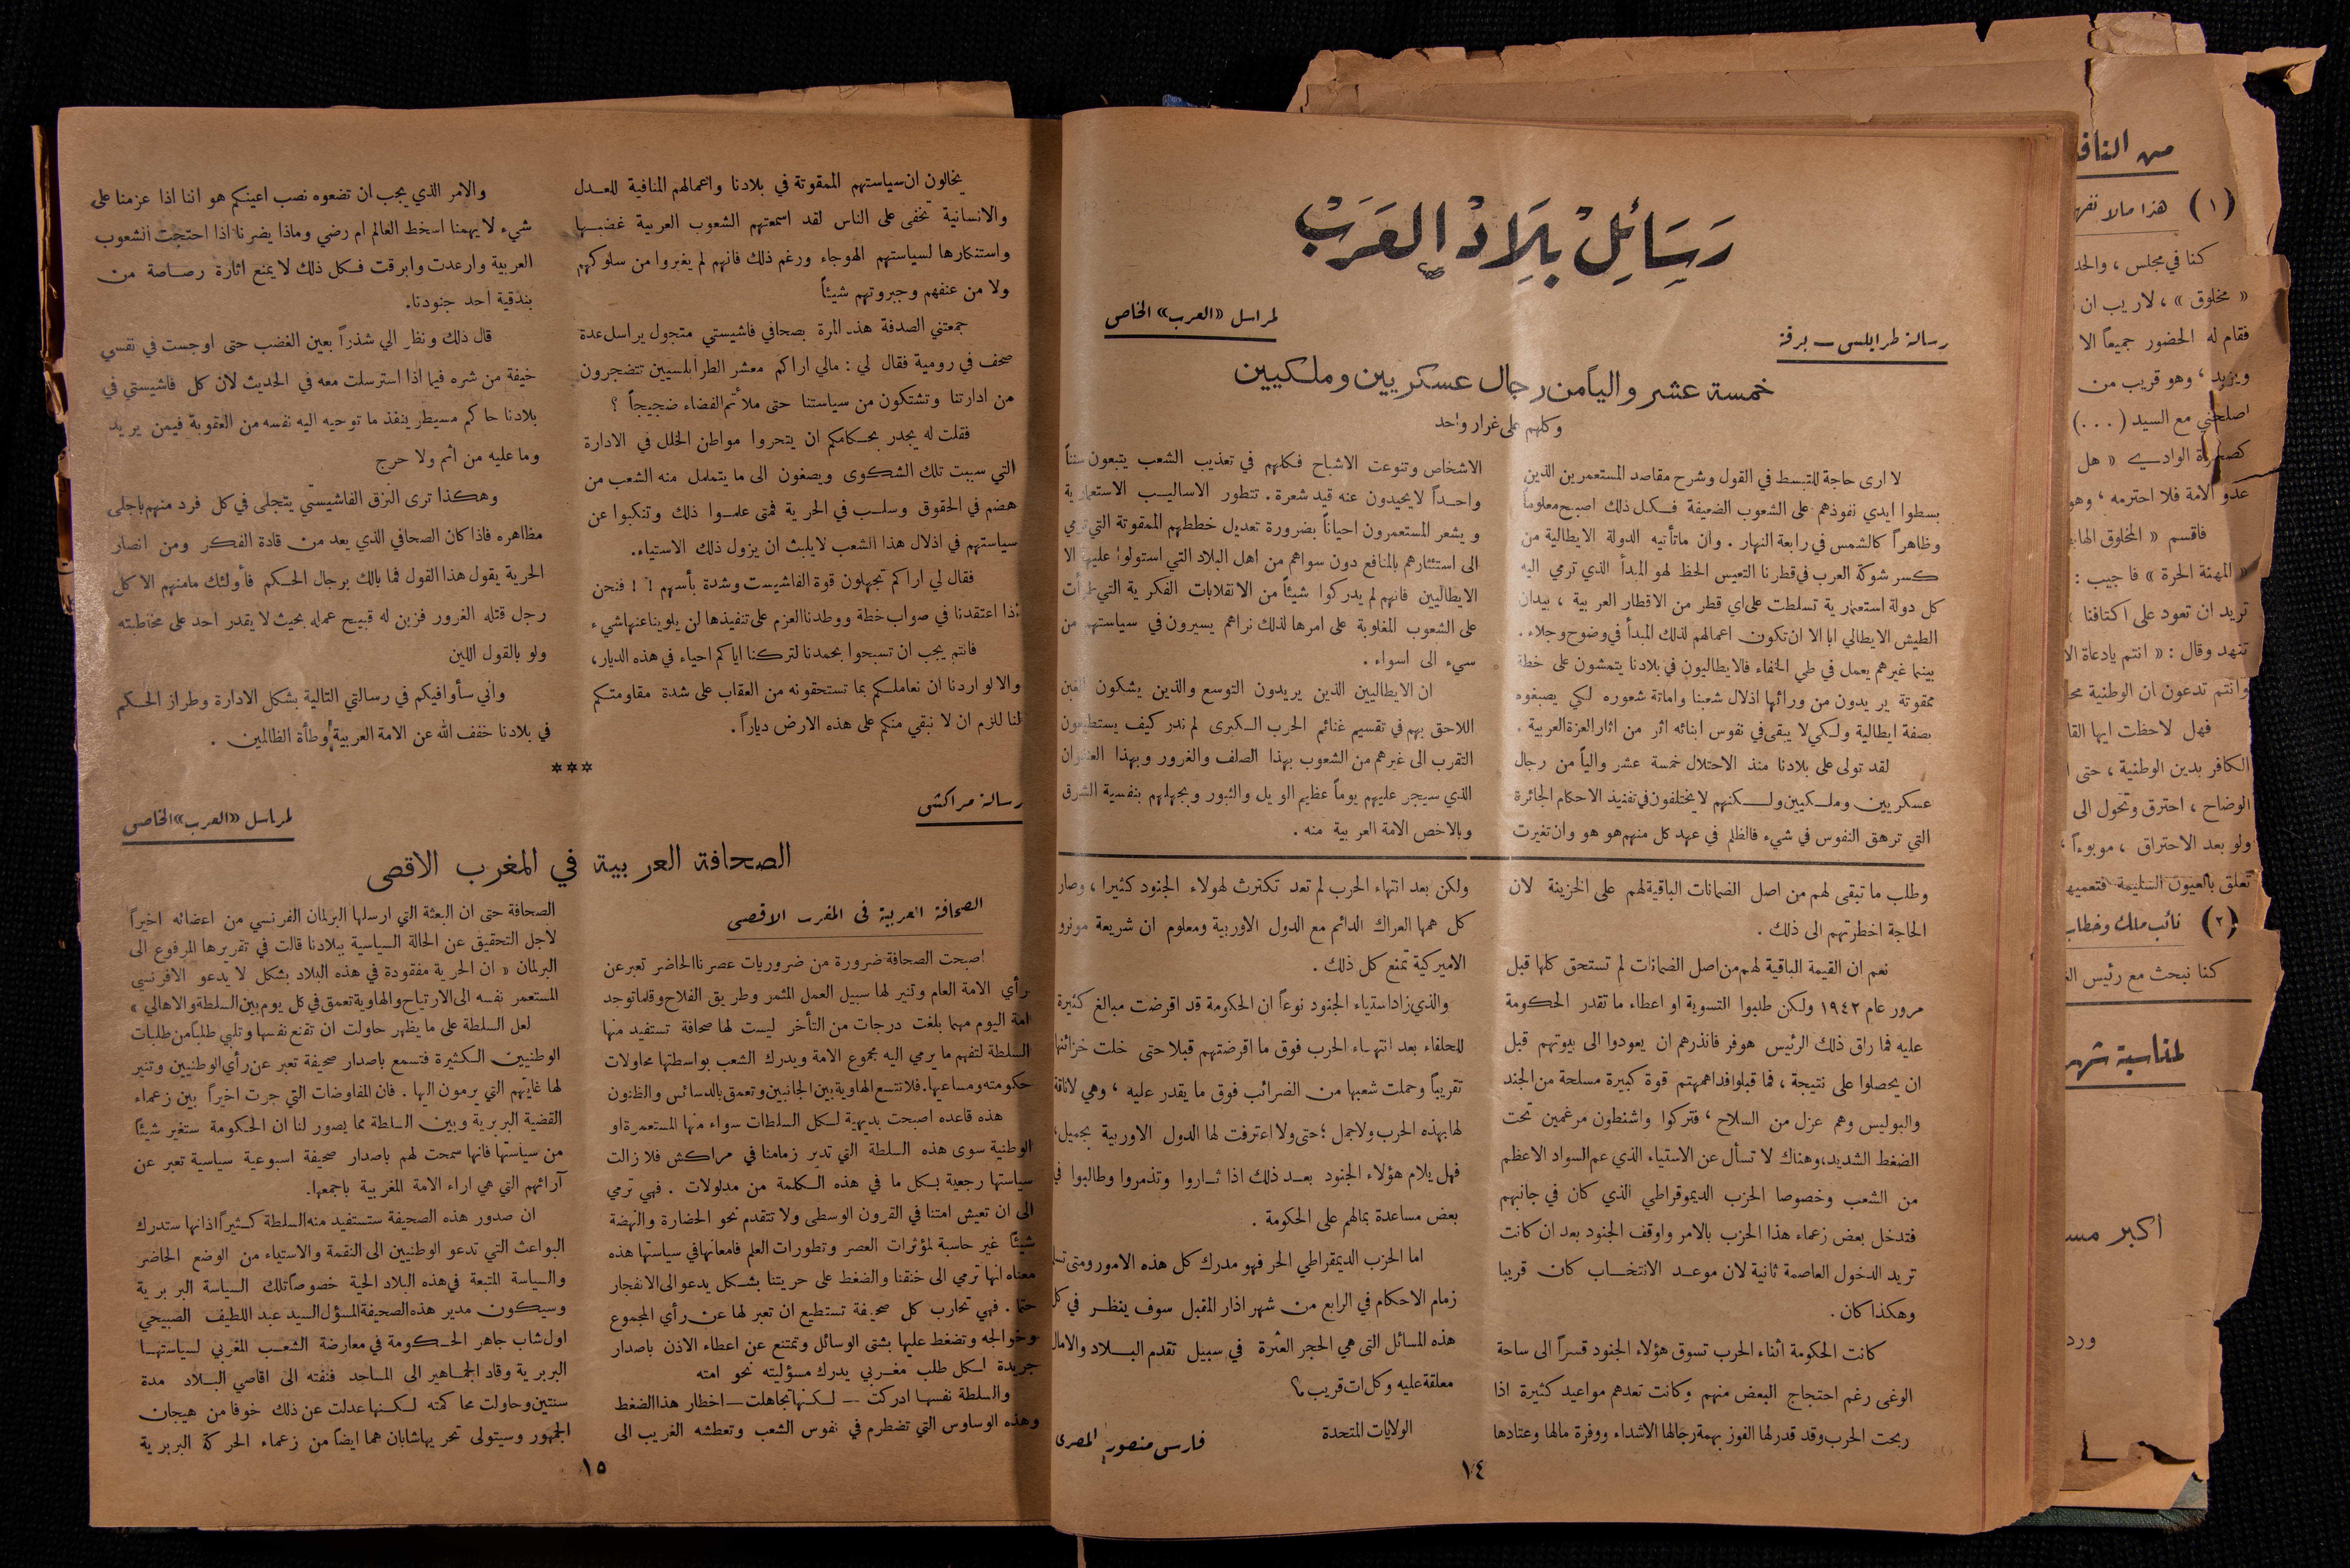 رَسَائِلْ بِلَادْ العَرَبْ
رسالة طرابلس — برقة
لمراسل «العرب» الخاص
خمسة عشر والياً من رجال عسكريين وملكيين
وكلهم على غرار واحد
لا ارى حاجة للتبسط في القول وشرح مقاصد المستعمرين الذين
بسطوا ايدي نفوذهم على الشعوب الضعيفة فكل ذلك اصبح معلوماً
وظاهراً كالشمس في رابعة النهار . وان ماتأتيه الدولة الايطالية من
كسر شوكة العرب في قطرنا التعيس الحظ لهو المبدأ الذي ترمي اليه
كل دولة استعمارية تسلطت على اي قطر من الاقطار العربية ، بيدان
الطيش الايطالي ابا الا ان تكون اعمالهم لذلك المبدأ في وضوح وجلاء .
بينما غيرهم يعمل في طي الخفاء فالايطاليون في بلادنا يتمشون على خطة
ممقوتة يريدون من ورائها اذلال شعبنا واماتة شعوره لكي يصبغوه
بصفة ايطالية ولكي لا يبقى في نفوس ابنائه اثر من اثار العزة العربية .
لقد تولى على بلادنا منذ الاحتلال خمسة عشر والياً من رجال
عسكريين وملكيين ولكنهم لا يختلفون في تنفيذ الاحكام الجائرة
التي ترهق النفوس في شيء فالظلم في عهد كل منهم هو هو وان تغيرت
الاشخاص وتنوعت الاشباح فكلهم في تعذيب الشعب يتبعون سنناً
واحداً لايحيدون عنه قيد شعرة . تتطور الاساليب الاستعمارية
ويشعر المستعمرون احياناً بضرورة تعديل خططهم الممقوتة التي ترمي
الى استئثارهم بالمنافع دون سواهم من اهل البلاد التي استولوا عليها الا
الايطاليين فانهم لم يدركوا شيئاً من الانقلابات الفكرية التي طرأت
على الشعوب المغلوبة على امرها لذلك نراهم يسيرون في سياستهم من
سيء الى اسواء .
ان الايطاليين الذين يريدون التوسع والذين يشكون الغبن
اللاحق بهم في تقسيم غنائم الحرب الكبرى لم ندر كيف يستطيعون
التقرب الى غيرهم من الشعوب بهذا الصلف والغرور وبهذا العنفوان
الذي سيجر عليهم يوماً عظيم الويل والثبور وبجهلهم بنفسية الشرق
وبالاخص الامة العربية منه .
وطلب ما تبقى لهم من اصل الضمانات الباقية لهم على الخزينة لان
الحاجة اخطرتهم الى ذلك .
نعم ان القيمة الباقية لهم من اصل الضمانات لم تستحق كلها قبل
مرور عام ١٩٤٢ ولكن طلبوا التسوية او اعطاء ما تقدر الحكومة
عليه فما راق ذلك الرئيس هوفر فانذرهم ان يعودوا الى بيوتهم قبل
ان يحصلوا على نتيجة ، فما قبلوا فداهمهتم قوة كبيرة مسلحة من الجند
والبوليس وهم عزل من السلاح ، فتركوا واشنطون مرغمين تحت
الضغط الشديد، وهناك لا تسأل عن الاستياء الذي عم السواد الاعظم
من الشعب وخصوصا الحزب الديموقراطي الذي كان في جانبهم
فتدخل بعض زعماء هذا الحزب بالامر واوقف الجنود بعد ان كانت
تريد الدخول العاصمة ثانية لان موعد الانتخاب كان قريبا
وهكذا كان .
كانت الحكومة اثناء الحرب تسوق هؤلاء الجنود قسراً الى ساحة
الوغى رغم احتجاج البعض منهم وكانت تعدهم مواعيد كثيرة اذا
ربحت الحرب وقد قدر لها الفوز بهمة رجالها الاشداء ووفرة مالها وعتادها
ولكن بعد انتهاء الحرب لم تعد تكترث لهولاء الجنود كثيرا ، وصار
كل همها العراك الدائم مع الدول الاوربية ومعلوم ان شريعة مونرو
الاميركية تمنع كل ذلك .
والذي زاد استياء الجنود نوعاً ان الحكومة قد اقرضت مبالغ كثيرة
للحلفاء بعد انتهاء الحرب فوق ما اقرضتهم قبلا حتى خلت خزائنها
تقريباً وحملت شعبها من الضرائب فوق ما يقدر عليه ، وهي لاناقة
لها بهذه الحرب ولاجمل ؛ حتى ولا اعترفت لها الدول الاوربية بجميل،
فهل يلام هؤلاء الجنود بعد ذلك اذا ثاروا وتذمروا وطالبوا في
بعض مساعدة بمالهم على الحكومة .
اما الحزب الديمقراطي الحر فهو مدرك كل هذه الامور ومتى
زمام الاحكام في الرابع من شهر اذار المقبل سوف ينظر في كل
هذه المسائل التي هي الحجر العثرة في سبيل تقدم البلاد والامال
معلقة عليه وكل ات قريب ؟
الولايات المتحدة
فارس منصور المصري
١٤
يخالون ان سياستهم الممقوتة في بلادنا واعمالهم المنافية للعدل
والانسانية تخفى على الناس لقد اسمعتهم الشعوب العربية غضبها
واستنكارها لسياستهم الهوجاء ورغم ذلك فانهم لم يغيروا من سلوكهم
ولا من عنفهم وجبروتهم شيئاً
جمعتني الصدفة هذه المرة بصحافي فاشيستي متجول يراسل عدة
صحف في رومية فقال لي : مالي اراكم معشر الطرابلسيين تتضجرون
من ادارتنا وتشتكون من سياستنا حتى ملأتم الفضاء ضجيجاً ؟
فقلت له يجدر بحكامكم ان يتحروا مواطن الخلل في الادارة
التي سببت تلك الشكوى ويصغون الى ما يتململ منه الشعب من
هضم في الحقوق وسلب في الحرية فمتى علموا ذلك وتنكبوا عن
سياستهم في اذلال هذا الشعب لايلبث ان يزول ذلك الاستياء.
فقال لي اراكم تجهلون قوة الفاشيست وشدة بأسهم ! ! فنحن
اذا اعتقدنا في صواب خطة ووطدنا العزم على تنفيذها لن يلوينا عنها شيء
فانتم يجب ان تسبحوا بحمدنا لتركنا اياكم احياء في هذه الديار،
والا لو اردنا ان نعاملكم بما تستحقونه من العقاب على شدة مقاومتكم
لنا للزم ان لا نبقي منكم على هذه الارض دياراً.
والامر الذي يجب ان تضعوه نصب اعينكم هو اننا اذا عزمنا على
شيء لا يهمنا اسخط العالم ام رضي وماذا يضرنا اذا احتجت الشعوب
العربية وارعدت وابرقت فكل ذلك لا يمنع اثارة رصاصة من
بندقية احد جنودنا.
قال ذلك ونظر الي شذراً بعين الغضب حتى اوجست في نفسي
خيفة من شره فيما اذا استرسلت معه في الحديث لان كل فاشيستي في
بلادنا حاكم مسيطر ينفذ ما توحيه اليه نفسه من العقوبة فيمن يريد
وما عليه من اثم ولا حرج
وهكذا ترى النزق الفاشيستي يتجلى في كل فرد منهم باجلى
مظاهره فاذا كان الصحافي الذي يعد من قادة الفكر ومن انصار
الحرية يقول هذا القول فما بالك برجال الحكم فأولئك مامنهم الا كل
رجل قتله الغرور فزين له قبيح عمله بحيث لا يقدر احد على مخاطبته
ولو بالقول اللين
واني سأوافيكم في رسالتي التالية بشكل الادارة وطراز الحكم
في بلادنا خفف الله عن الامة العربية وطأة الظالمين .
***
رسالة مراكش
لمراسل «العرب» الخاص
الصحافة العربية في المغرب الاقصى
الصحافة العربية في المغرب الاقصى
اصبحت الصحافة ضرورة من ضروريات عصرنا الحاضر تعبر عن
رأي الامة العام وتنير لها سبيل العمل المثمر وطريق الفلاح وقلما توجد
امة اليوم مهما بلغت درجات من التأخر ليست لها صحافة تستفيد منها
السلطة لتفهم ما يرمي اليه مجموع الامة ويدرك الشعب بواسطتها محاولات
حكومته ومساعيها. فلا تتسع الهاوية بين الجانبين وتعمق بالدسائس والظنون
هذه قاعده اصبحت بديهية لكل السلطات سواء منها المستعمرة او
الوطنية سوى هذه السلطة التي تدير زمامنا في مراكش فلا زالت
سياستها رجعية بكل ما في هذه الكلمة من مدلولات . فهي ترمي
الى ان تعيش امتنا في القرون الوسطى ولا تتقدم نحو الحضارة والنهضة
شيئاً غير حاسبة لمؤثرات العصر وتطورات العلم فامعانها في سياستها هذه
معناه انها ترمي الى خنقنا والضغط على حريتنا بشكل يدعو الى الانفجار
حتما . فهي تحارب كل صحيفة تستطيع ان تعبر لها عن رأي المجموع
وخوالجه وتضغط عليها بشتى الوسائل وتمتنع عن اعطاء الاذن باصدار
جريدة لكل طلب مغربي يدرك مسؤليته نحو امته
والسلطة نفسها ادركت — لكنها تجاهلت — اخطار هذا الضغط
وهذه الوساوس التي تضطرم في نفوس الشعب وتعطشه الغريب الى
الصحافة حتى ان البعثة التي ارسلها البرلمان الفرنسي من اعضائه اخيراً
لاجل التحقيق عن الحالة السياسية ببلادنا قالت في تقريرها المرفوع الى
البرلمان « ان الحرية مفقودة في هذه البلاد بشكل لا يدعو الافرنسي
المستعمر نفسه الى الارتياح والهاوية تعمق في كل يوم بين السلطة والاهالي »
لعل السلطة على ما يظهر حاولت ان تقنع نفسها وتلبي طلباً من طلبات
الوطنيين الكثيرة فتسمع باصدار صحيفة تعبر عن رأي الوطنيين وتنير
لها غايتهم التي يرمون اليها . فان المفاوضات التي جرت اخيراً بين زعماء
القضية البربرية وبين السلطة مما يصور لنا ان الحكومة ستغير شيئاً
من سياستها فانها سمحت لهم باصدار صحيفة اسبوعية سياسية تعبر عن
آرائهم التي هي اراء الامة المغربية باجمعها.
ان صدور هذه الصحيفة ستستفيد منه السلطة كثيراً اذ انها ستدرك
البواعث التي تدعو الوطنيين الى النقمة والاستياء من الوضع الحاضر
والسياسة المتبعة في هذه البلاد الحية خصوصاً تلك السياسة البربرية
وسيكون مدير هذه الصحيفة المسؤل السيد عبد اللطيف الصبيحي
اول شاب جاهر الحكومة في معارضة الشعب المغربي لسياستها
البربرية وقاد الجماهير الى المساجد فنفته الى اقاصي البلاد مدة
سنتين وحاولت محاكمته لكنها عدلت عن ذلك خوفا من هيجان
الجمهور وسيتولى تحريها شابان هما ايضاً من زعماء الحركة البربرية
١٥
من النافذ
(١) هذا مالا نفه
كنا في مجلس ، والحد
« مخلوق » ، لاريب ان
فقام له الحضور جميعاً الا
ويزيد ، وهو قريب من
اصلحني مع السيد (...)
الوادي « هل
عدو الامة فلا احترمه ، وهو
فاقسم « المخلوق
« المهنة الحرة » فاجيب :
تريد ان تعود على اكتافنا
تنهد وقال : « انتم يادعاة الا
وانتم تدعون ان الوطنية
فهل لاحظت ايها القا
الكافر بدين الوطنية ، حتى
الوضاح ، احترق وتحول الى
ولو بعد الاحتراق ، موبوءاً ،
تعلق بالعيون السليمة فتعميها
(٢) نائب ملك وخطاب
كنا نبحث مع رئيس
لمناسبة شهر
أكبر مسـ
ورد